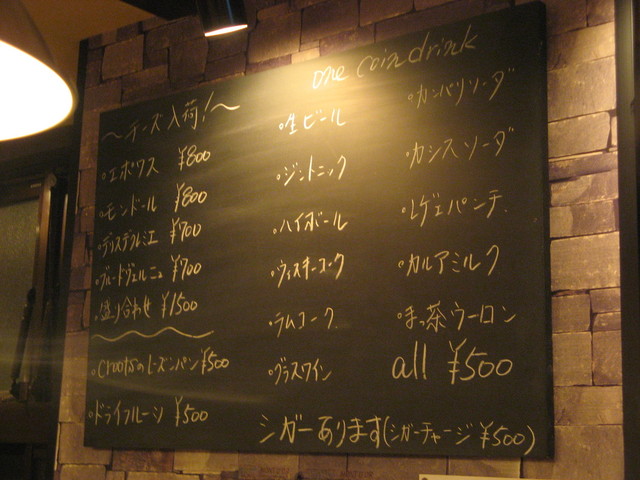 〜チーズ入荷!〜
・エポワス ¥800
・モンドール ¥800
・デリスデクレミエ ¥700
・ブルードヴェルニュ ¥700
・盛り合わせ ¥1500
・のレーズンパン ¥500
・ドライフルーツ ¥500
one coin drink
・生ビール
・ジントニック
・ハイボール
・ウィスキーコーク
・ラムコーク
・グラスワイン
・カンパリソーダ
・カシスソーダ
・レゲエパンチ
・カルアミルク
・まっ茶ウーロン
all ¥500
シガーあります(シガーチャージ ¥500)